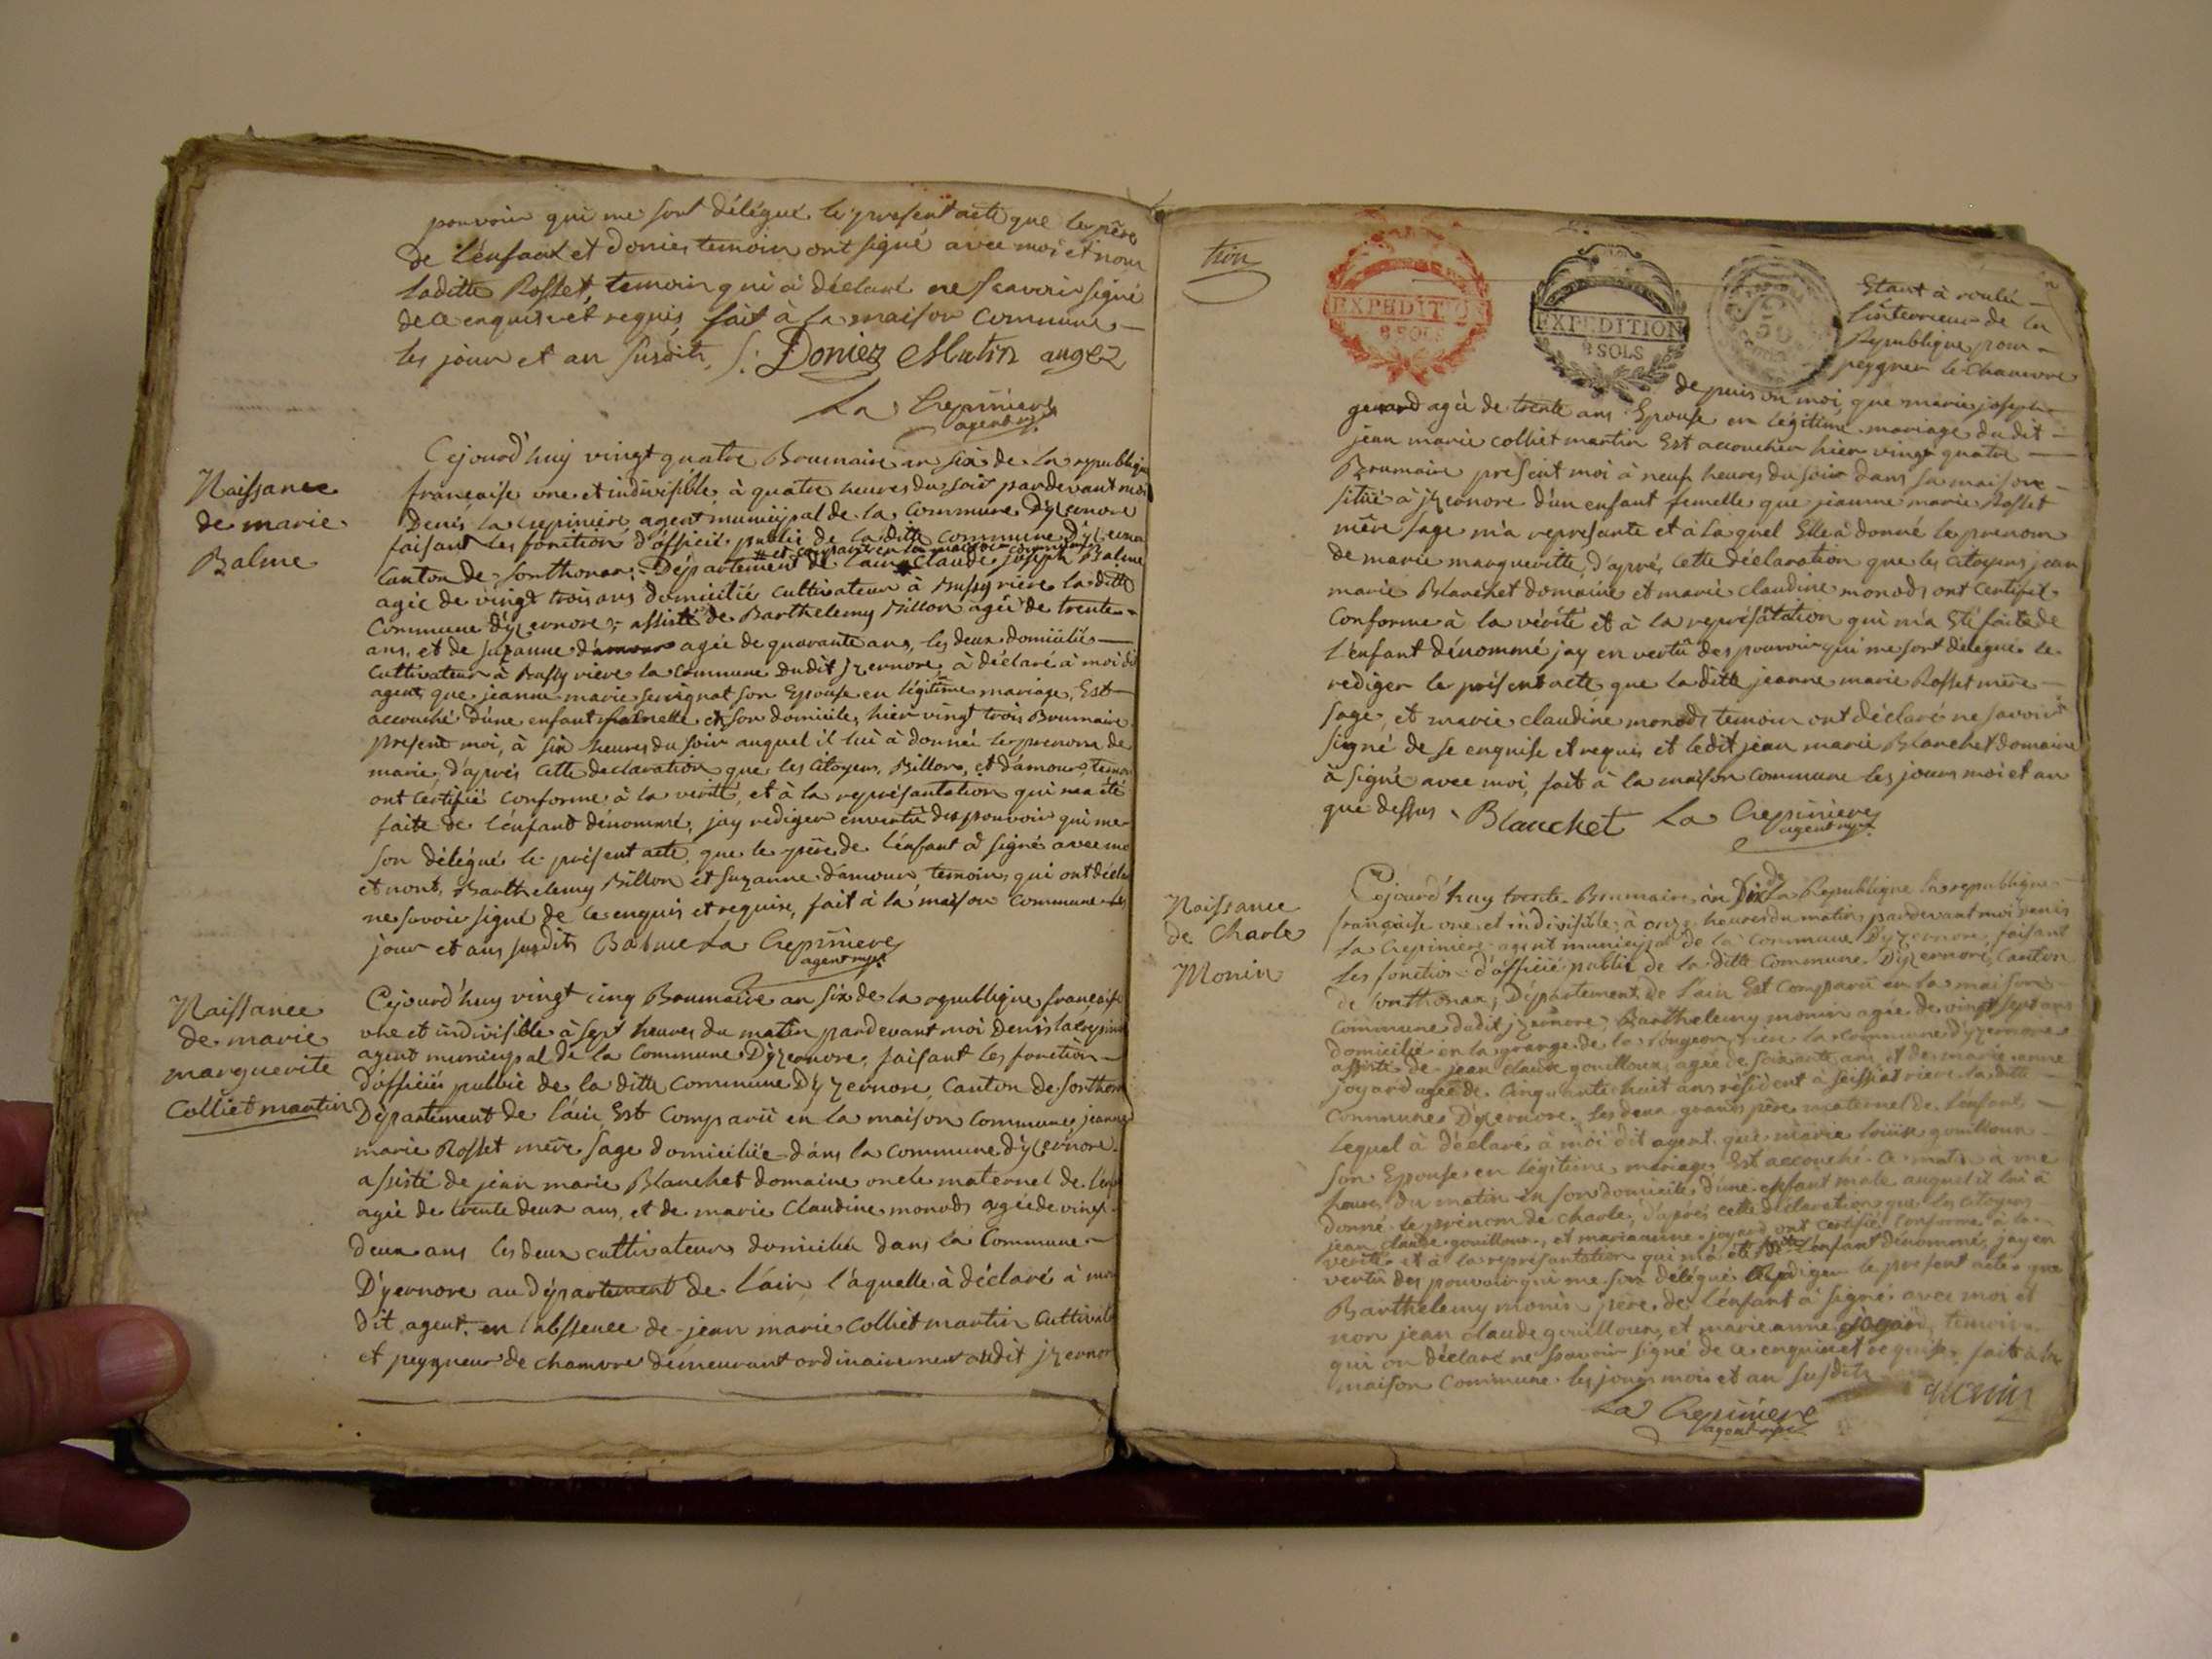 pouvoir qui me sont délégué le present acte que le père
de l'enfant et donier temoin ont signé avec moi et non
laditte Rosset, temoin qui à déclaré ne scavoir signé
de ce enquise et requis fait à la maison Commune
les jour et an susdits, Doniez Mutin angez
La Crepiniere
agent mpl
Naissance
de marie
Balme
Cejourd'huy vingt quatre Brumaire an six de la republique
francaise une et indivisible à quatre heures du soir pardevant moi
Denis La crepiniere agent municipal de la Commune D'yzernore
faisant les fonction d'officié public de la ditte Commune D'yzernore
et comparut en la maison commune
Canton de Sonthonax Département de l'ain Claude joseph Balme
agée de vingt trois ans domicilié cultivateur à Bussy riere la ditte
Commune d'yzernore, assisté de Barthelemy Billon agée de trente
ans, et de suzanne damour agée de quarante ans, les deux domiciliés
cultivateur à Bussy riere la Commune dudit jzernore à déclaré à moi dit
agent que jeanne marie servignat son Epouse en légitime mariage, Est
accouché d'une enfant femelle en son domicile, hier vingt trois Brumaire
present moi, à six heures du soir auquel il lui à donnée le prenom de
marie, d'après cette declaration que les citoyens, Billon, et damour, temoin
ont certifié conforme à la verité, et à la représantation qui ma été
faite de l'enfant dénommé, jay rediger en vertu des pouvoir qui me
son délégué le présent acte, que le père de l'enfant a signé avec moi
et nont, Barthelemy Billon et suzanne damour temoins qui ont déclaré
ne savoir signé de ce enquis et requise, fait à la maison Commune les
jour et ans susdits Balme La Crepiniere
agent mpl
Naissance
de marie
marguerite
Colliet martin
Cejourd'huy vingt cinq Brumaire an six de la republique francaise
une et indivisible à sept heures du matin pardevant moi Denis lacrepiniere
agent municipal de la Commune D'yzernore, faisant les fonction
d'officiés publié de la ditte Commune D'yzernore, Canton de sonthonax
Département de l'ain Est Comparüe en la maison Commune jeanne
marie Rosset mere sage domiciliée dans la commune d'yzernore
assisté de jean marie Blanchet domaine oncle maternel de l'enfant
agée de trente deux ans, et de marie Claudine monods agée de vingt
deux ans les deux cultivateurs domicilié dans la Commune
D'yernore au département de l'ain l'aquelle à déclaré à moi
dit agent. en l'abssence de jean marie colliet martin cultivateur
et peygneur de chamvre demeurant ordinairement audit jzernore
tion
EXPEDITION
8 SOLS
EXPEDITION
8 SOLS
Etant à roulé
l'interieur de la
Republique pour
peygner le chanvre
depuis un moi, que marie joseph
genard agée de trente ans Epouse en légitime mariage dudit
jean marie colliet martin Est accoucher hier vingt quatre
Brumaire present moi à neuf heures du soir dans sa maison
situé à jzernore d'un enfant femelle que jeanne marie Rosset
mère sage m'a represante et à laquel Elle à donné le prenom
de marie marguerite, d'après cette déclaration que les citoyens jean
marie Blanchet domaine et marie claudine monods ont certifié
conforme à la vérité et à la représatation qui m'a été faite de
l'enfant dénommé jay en vertu des pouvoir qui me sont délégué le
rediger le présent acte que laditte jeanne marie Rosset mère
sage, et marie claudine monods temoin ont déclaré ne savoir
signé de se enquise et requis et ledit jean marie Blanchet domaine
à signé avec moi, fait à la maison commune les jours moi et an
que dessus, Blanchet La Crepiniere
agent mpl
Naissance
de Charle
Monin
Cejourd'huy trente Brumaire an Six de la Republique la republique
française une et indivisible à onze heures du matin pardevant moi denis
la Crepiniere agent municipal de la commune D'yzernore, faisant
les fonction d'officié public de la ditte Commune D'yzernore, Canton
de sonthonax, Département de l'ain Est comparü en la maison
Commune dudit jzernore, Barthelemy monin agée de vingt sept ans
domicilié en la grange de la riere la commune d'yzernore
assisté de jean claude gouilloux agée de soixante ans et de marie anne
joyard agée de Cinquante huit ans résident à seissiat riere la ditte
Commune D'yzernore. les deux grands père maternel de l'enfant
Lequel à déclaré à moi dit agent que marie louise gouilloux
son Epouse en légitime mariage Est accouché ce matin a une
heure du matin en son domicile d'une enfant male auquel il lui à
donné le prénom de charle, d'après cette déclaration que les citoyens
jean claude gouilloux, et marianne joyard ont certifié conforme à la
verité et à la représantation qui m'à été faite de l'enfant dénommé, jay en
vertu des pouvoir qui me son délégué rediger le present acte que
Barthelemy monin père de l'enfant à signé avec moi et
non jean claude gouilloux, et marie anne joyard temoin
qui on déclaré ne scavoir signé de ce enquis et requise fait à la
maison Commune les jours mois et an susdits
Monin
La Crepiniere
agent mpl